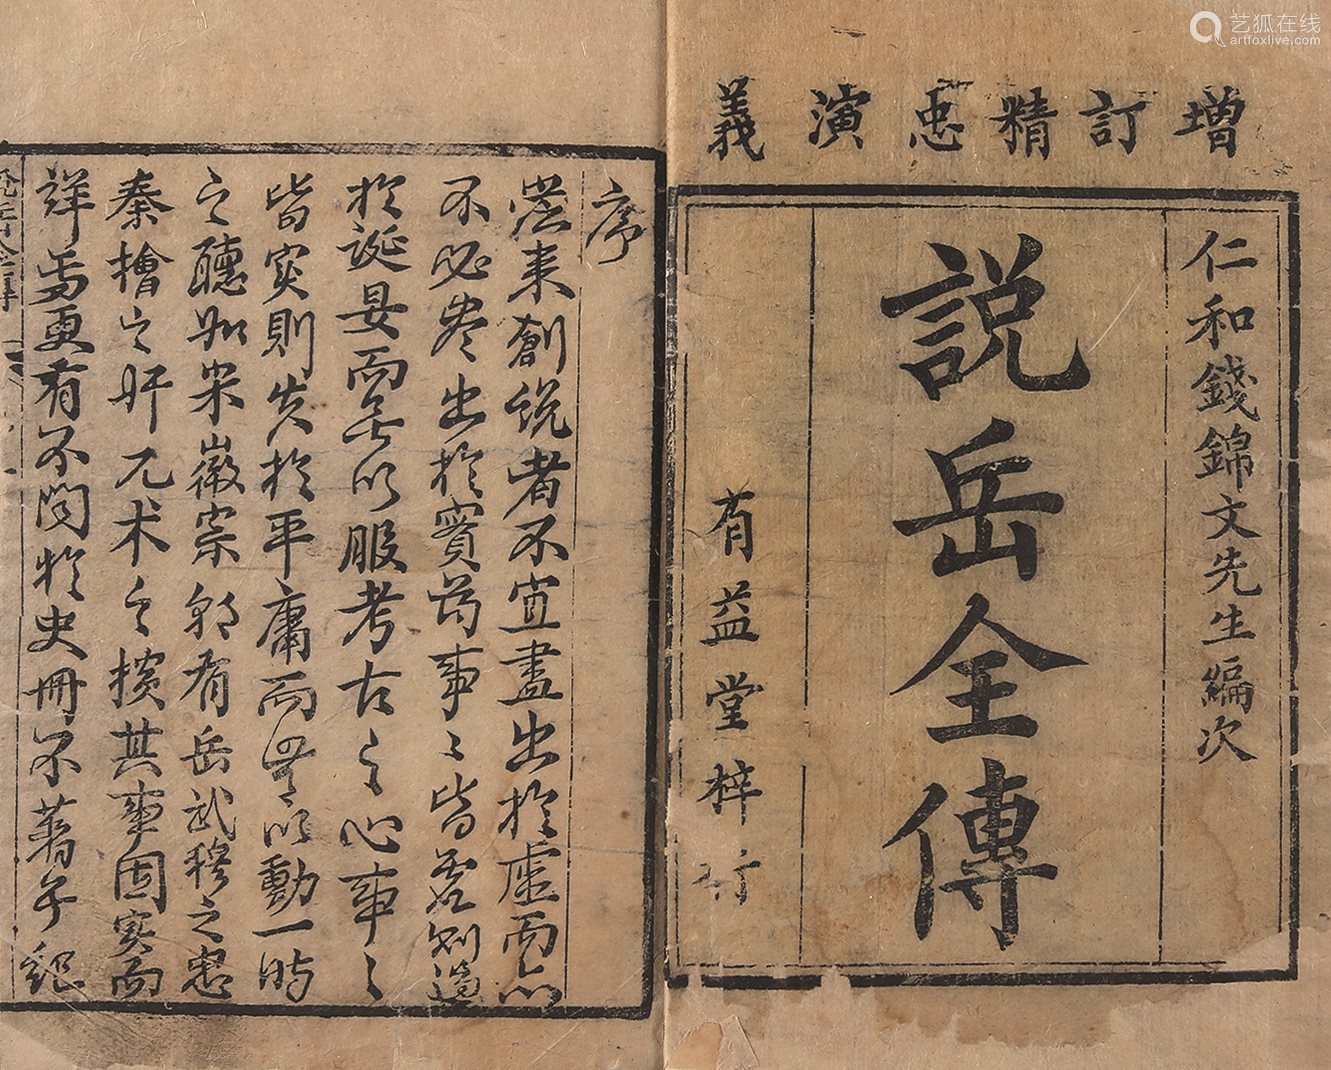 艺狐在线
artfoxlive.com
增訂精忠演義
仁和錢錦文先生編次
説岳全傳
有益堂梓行
序
從来創説者不宜盡出於虛而亦
不必尽出於實苟事〻皆虛則過
於誕妄而無以服考古之心事〻
皆实則失於平庸而無以動一時
之聽如宋徽宗朝有岳武穆之忠
秦檜之奸兀术之横其事固实而
詳焉更有不聞於史冊不著乎紀
説岳全傳